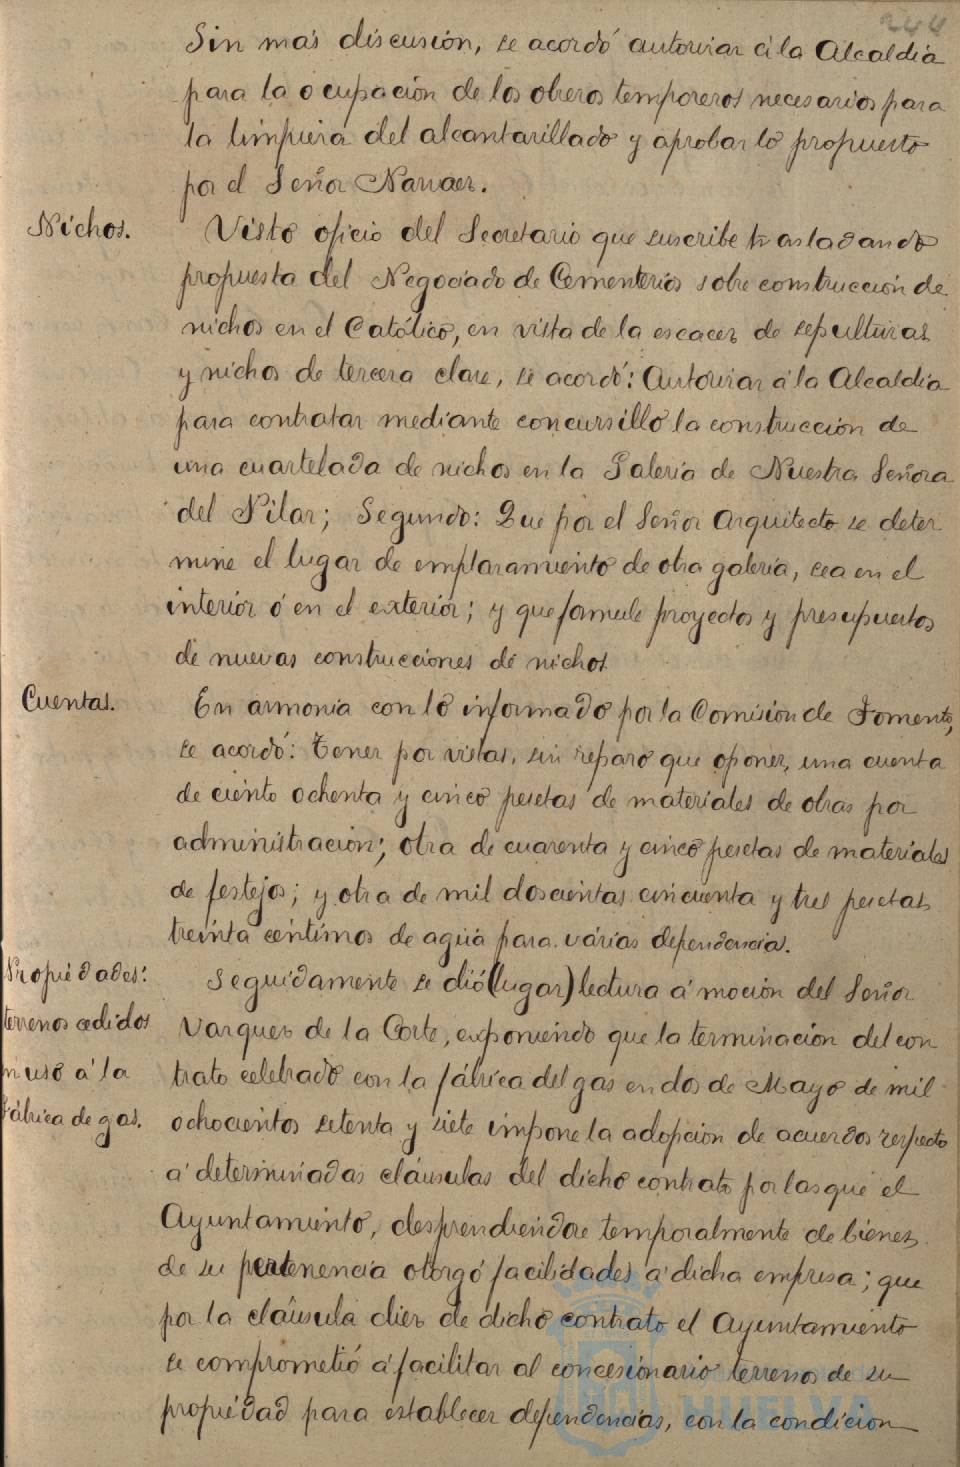 244
Sin más discusión, se acordó autorizar á la Alcaldía
para la ocupación de los obreros temporeros necesarios para
la limpieza del alcantarillado y aprobar lo propuesto
por el Señor Narvaez.
Nichos. Visto oficio del Secretario que suscribe trasladando
propuesta del Negociado de Cementerios sobre construcción de
nichos en el Católico, en vista de la escacez de sepulturas
y nichos de tercera clase, se acordó: Autorizar á la Alcaldía
para contratar mediante concursillo la construcción de
una cuartelada de nichos en la Galería de Nuestra Señora
del Pilar; Segundo: Que por el Señor Arquitecto se deter
mine el lugar de emplazamiento de otra galería, sea en el
interior ó en el exterior; y que formule proyectos y presupuestos
de nuevas construcciones de nichos
Cuentas. En armonía con lo informado por la Comisión de Fomento,
se acordó: Tener por vistas, sin reparo que oponer, una cuenta
de ciento ochenta y cinco pesetas de materiales de obras por
administración; otra de cuarenta y cinco pesetas de materiales
de festejos; y otra de mil doscientas cincuenta y tres pesetas
treinta centimos de agua para varias dependencia.
Propiedades: Seguidamente se dió (lugar) lectura á moción del Señor
terrenos cedidos Vazquez de la Corte, exponiendo que la terminación del con
en uso á la trato celebrado con la fábrica del gas en dos de Mayo de mil
Fábrica de gas. ochocientos setenta y siete impone la adopción de acuerdos respecto
á determinadas cláusulas del dicho contrato por las que el
Ayuntamiento, desprendiendose temporalmente de bienes
de su pertenencia otorgó facilidades á dicha empresa; que
por la cláusula diez de dicho contrato el Ayuntamiento
se comprometió á facilitar al concesionario terrenos de su
propiedad para establecer dependencias, con la condicion
HUELVA